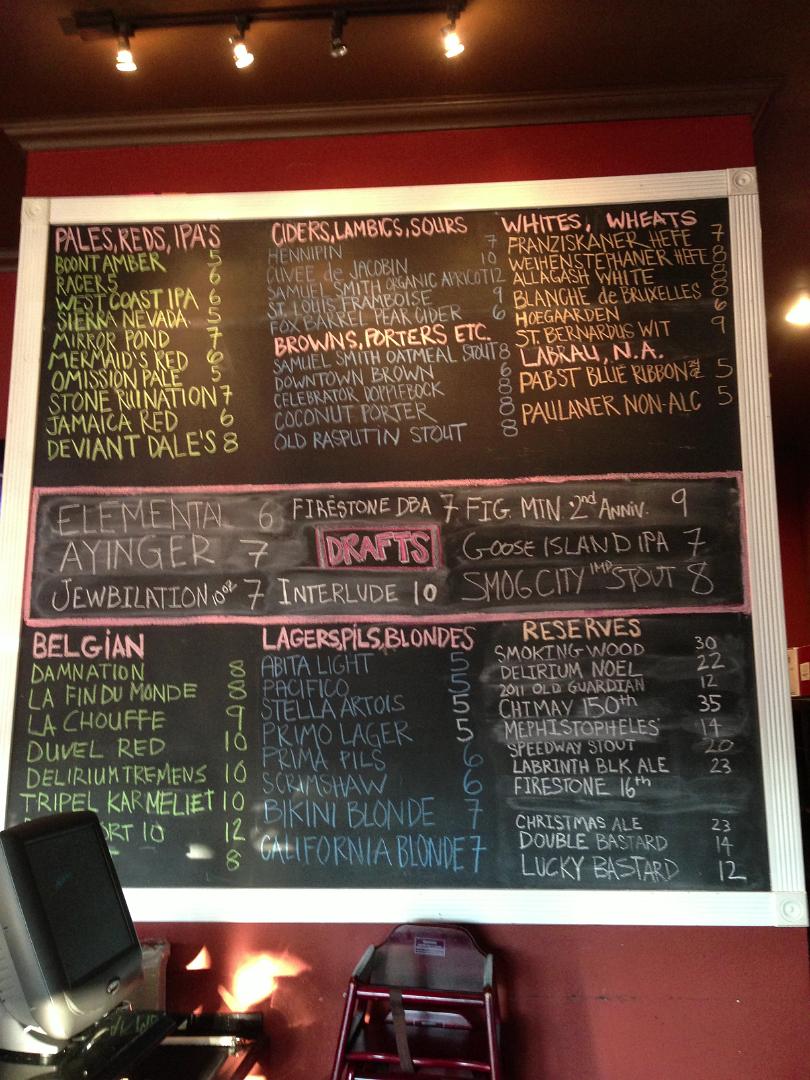 PALES,REDS, IPA'S
BOONT AMBER 5
RACER 5 6
WEST COAST IPA 6
SIERRA NEVADA 5
MIRROR POND 7
MERMAID'S RED 6
OMISSION PALE 5
STONE RUINATION 7
JAMAICA RED 6
DEVIANT DALE'S 8
CIDERS, LAMBICS, SOURS
HENNIPIN 7
CUVEE de JACOBIN 10
SAMUEL SMITH ORGANIC APRICOT 12
ST. LOUIS FRAMBOISE 9
FOX BARREL PEAR CIDER 6
BROWNS, PORTERS ETC.
SAMUEL SMITH OATMEAL STOUT 8
DOWNTOWN BROWN 6
CELEBRATOR DOPPLEBOCK 8
COCONUT PORTER 8
OLD RASPUTIN STOUT 8
WHITES, WHEATS
FRANZISKANER HEFE 7
WEIHENSTEPHANER HEFE 8
ALLAGASH WHITE 8
BLANCHE de BRUXELLES 8
HOEGAARDEN 6
ST. BERNARDUS WIT 9
LABRAU, N.A.
PABST BLUE RIBBON 24 oz 5
PAULANER NON-ALC 5
ELEMENTAL 6
AYINGER 7
JEWBILATION 10oz 7
FIRESTONE DBA 7
DRAFTS
INTERLUDE 10
FIG. MTN. 2nd ANNIV. 9
GOOSE ISLAND IPA 7
SMOG CITY IMP STOUT 8
BELGIAN
DAMNATION 8
LA FIN DU MONDE 8
LA CHOUFFE 9
DUVEL RED 10
DELIRIUM TREMENS 10
TRIPEL KARMELIET 10
ORT 10 12
8
LAGERS,PILS,BLONDES
ABITA LIGHT 5
PACIFICO 5
STELLA ARTOIS 5
PRIMO LAGER 5
PRIMA PILS 6
SCRIMSHAW 6
BIKINI BLONDE 7
CALIFORNIA BLONDE 7
RESERVES
SMOKING WOOD 30
DELIRIUM NOEL 22
2011 OLD GUARDIAN 12
CHIMAY 150th 35
MEPHISTOPHELES' 14
SPEEDWAY STOUT 20
LABRINTH BLK ALE 23
FIRESTONE 16th
CHRISTMAS ALE 23
DOUBLE BASTARD 14
LUCKY BASTARD 12